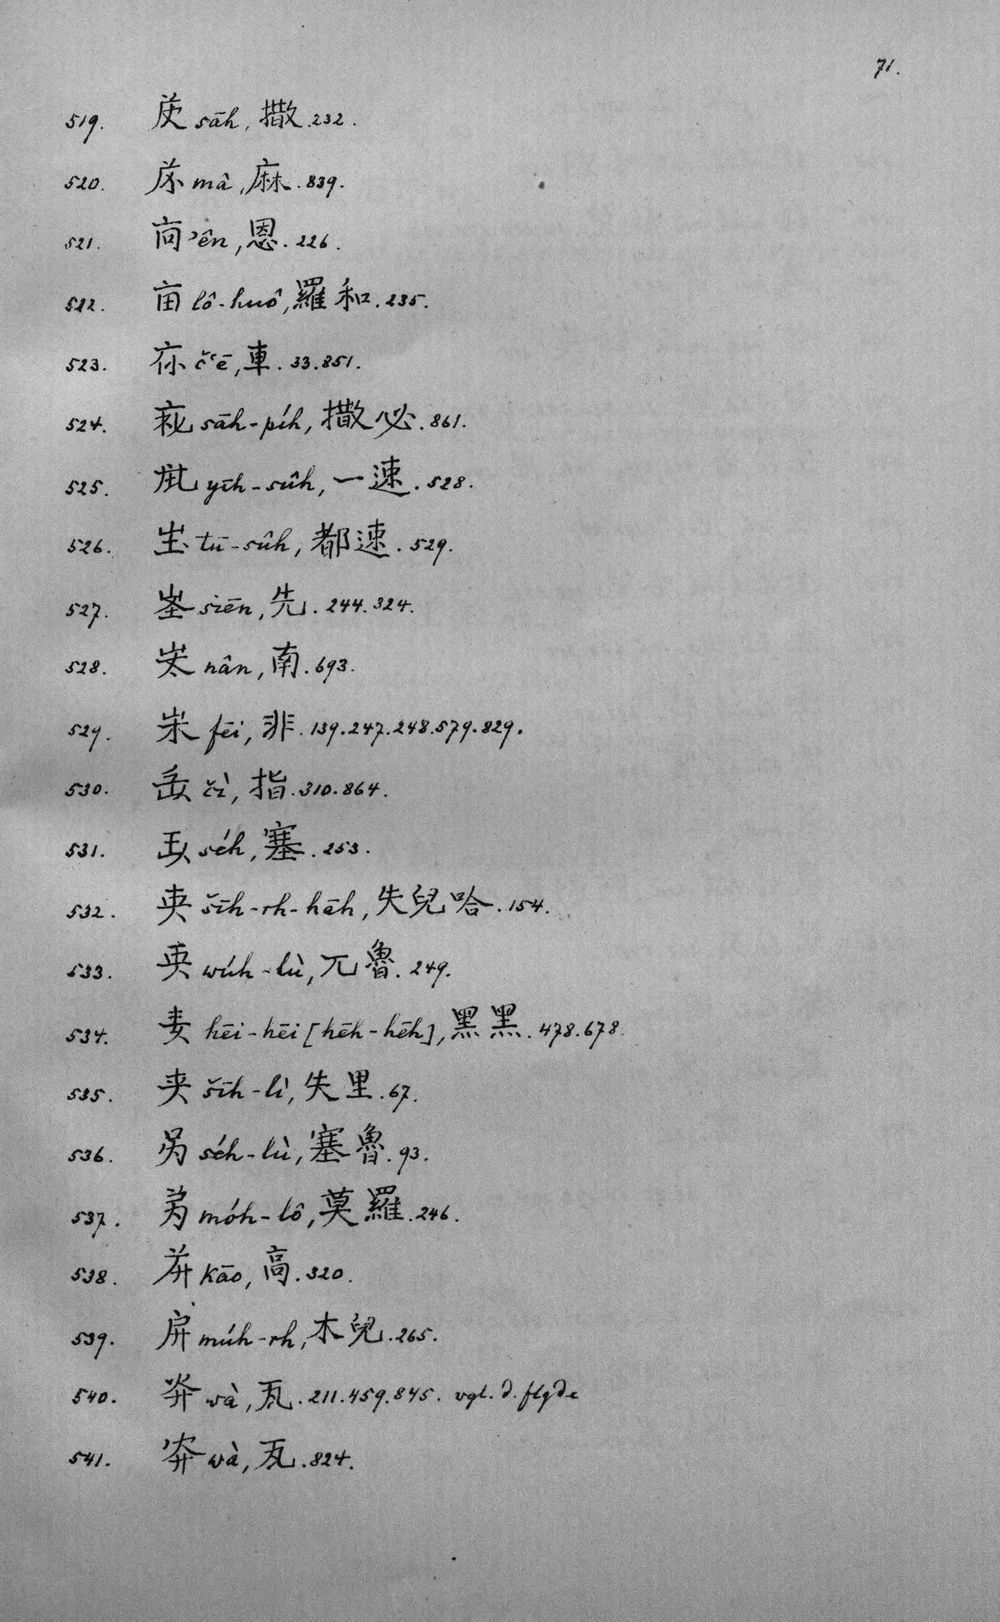 71.
519. sāh, 撒.232.
520. mâ, 麻.839.
521. ʼên, 恩.226.
522. lô-huô, 羅和.235.
523. č‘ē, 車.33.851.
524. sāh-píh, 撒必.861.
525. yīh-sûh, 一速.528.
526. tū-sûh, 都速.529.
527. siēn, 先.244.324.
528. nân, 南.693.
529. fēi, 非.139.247.248.579.829.
530. 指.310.864.
531. séh, 塞.253.
532. šīh-rh-hāh, 失兒哈.154.
533. wúh-lù, 兀魯.249.
534. hēi-hēi [hēh-hēh], 黑黑.478.678.
535. šīh-lì, 失里.67.
536. séh-lù, 塞魯.93.
537. móh-lô, 莫羅.246.
538. kāo, 高.320.
539. múh-rh, 木兒.265.
540. wà, 瓦.211.459.845. vgl. d. flgde
541. wà, 瓦.824.